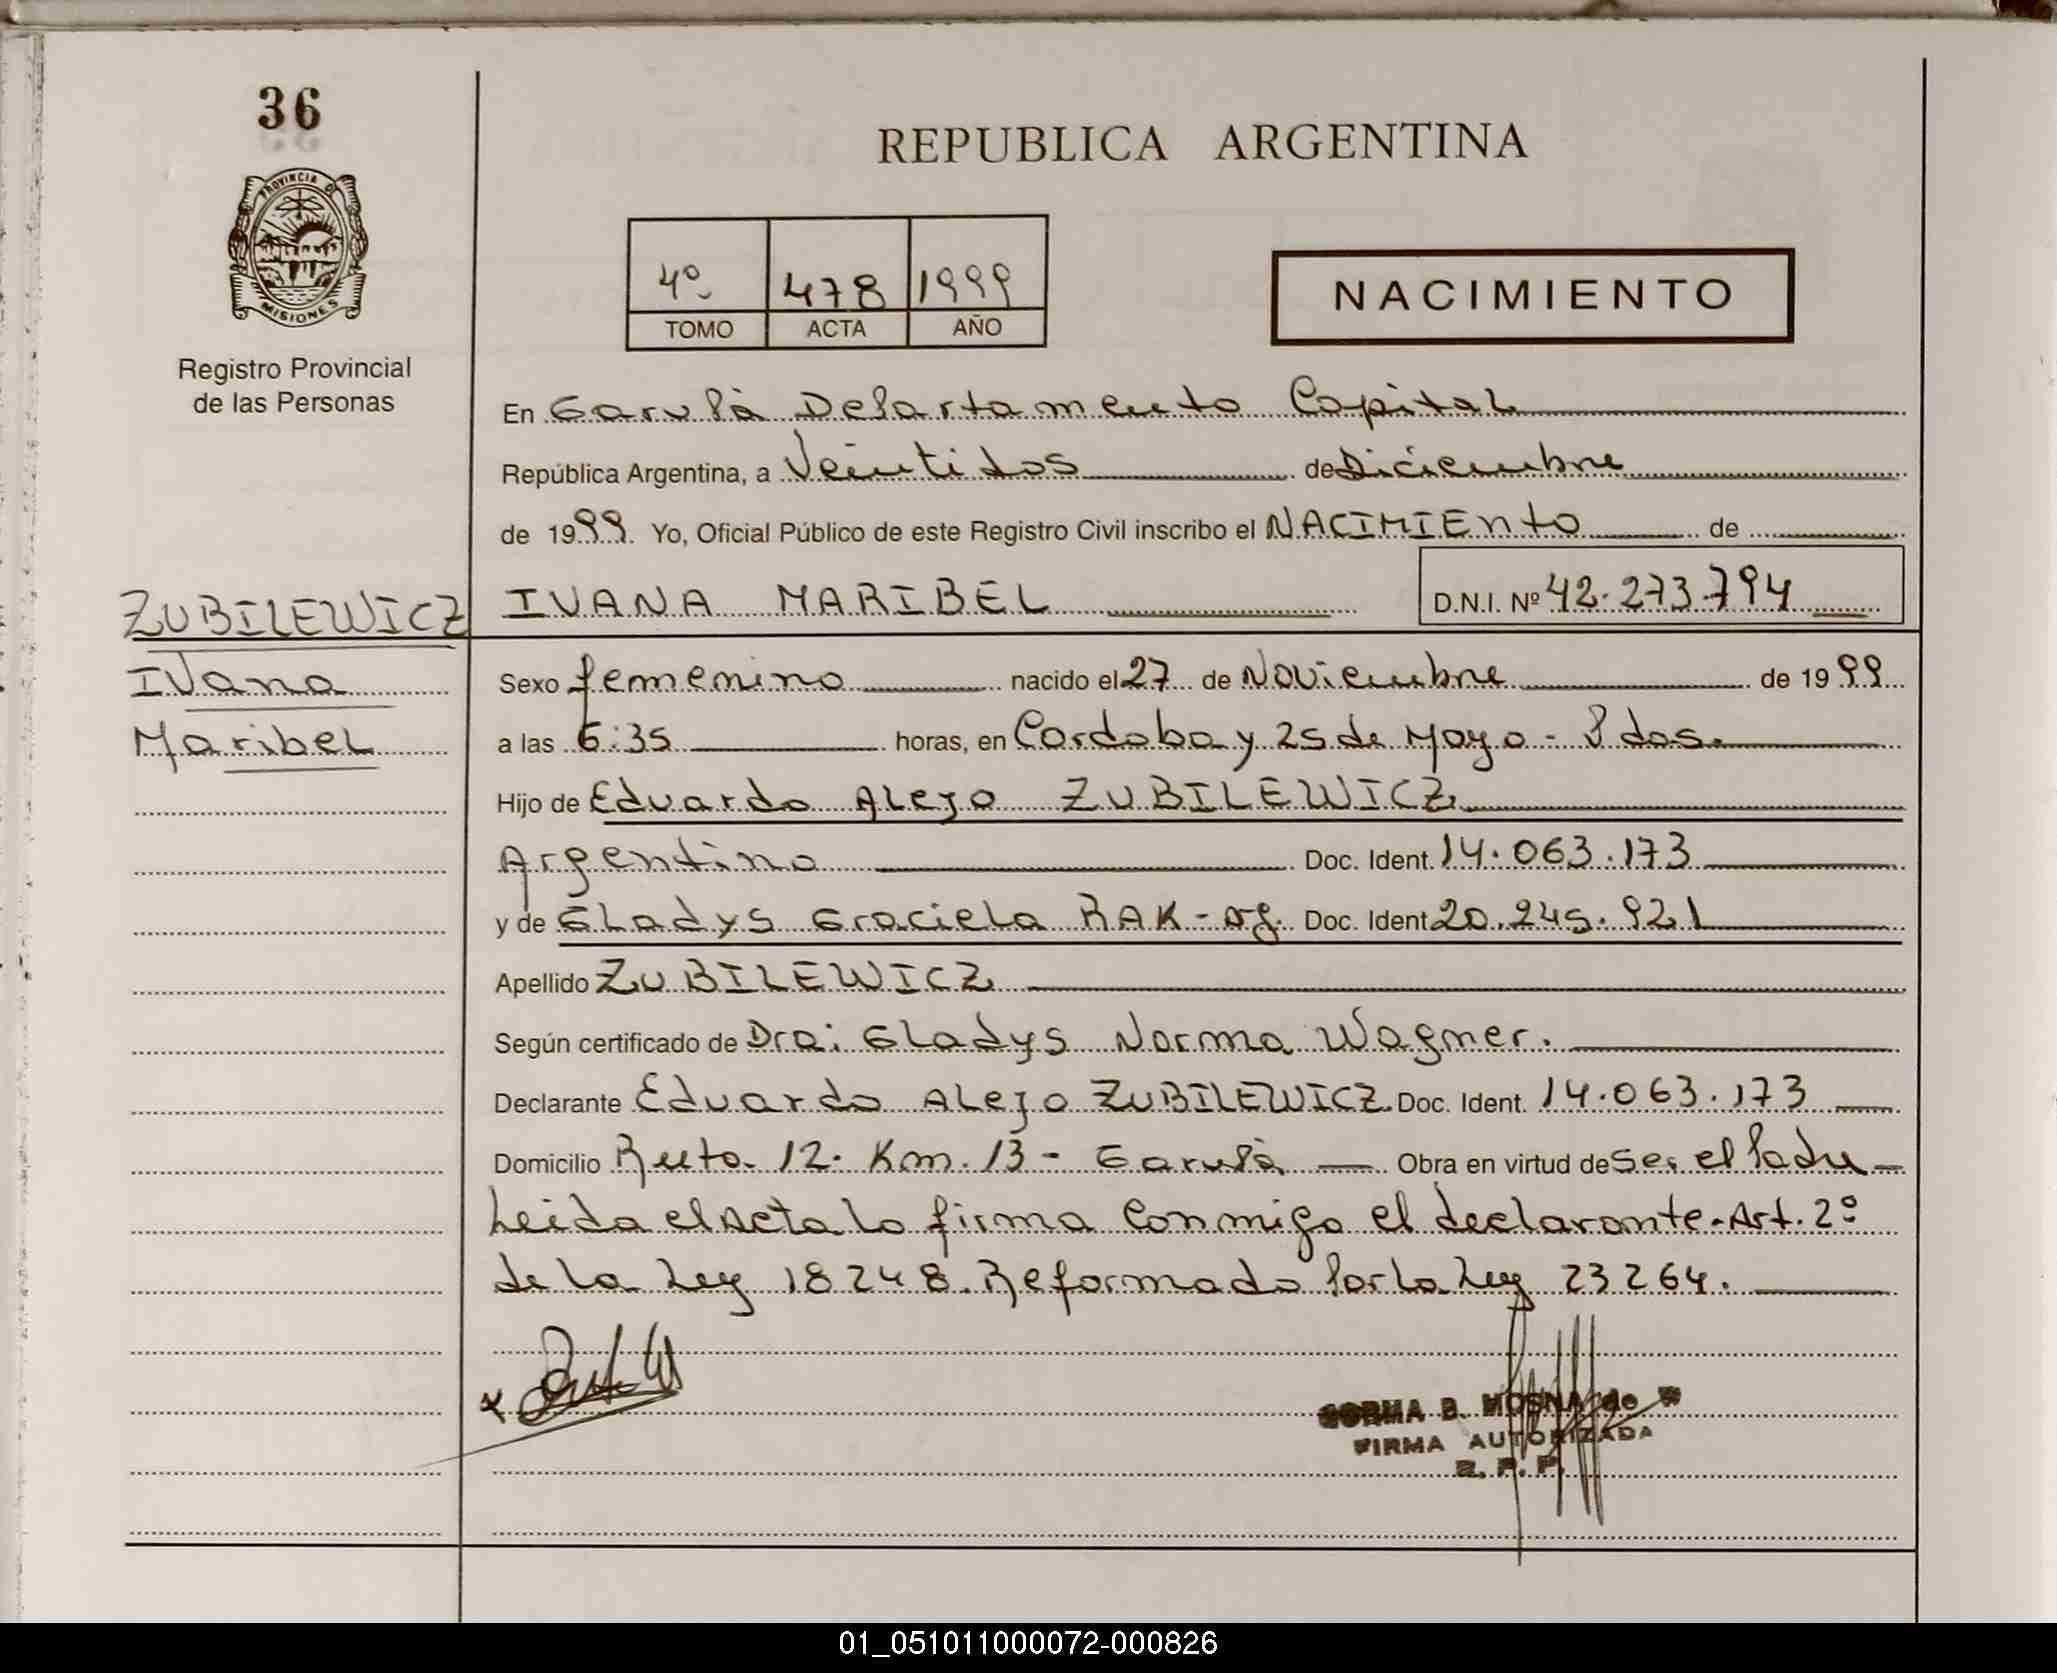 36
REPUBLICA ARGENTINA
PROVINCIA DE
MISIONES
4º 478 1999
TOMO ACTA AÑO
NACIMIENTO
Registro Provincial
de las Personas
En Garupà Departamento Capital
República Argentina, a Veintidos de Diciembre
de 1999 Yo, Oficial Público de este Registro Civil inscribo el NACIMIEnto de
IVANA MARIBEL D.N.I. Nº 42.273.794
ZUBILEWICZ
Ivana
Maribel
Sexo femenino nacido el 27 de Noviembre de 1999
a las 6:35 horas, en Cordoba y 25 de Mayo - Pdas.
Hijo de Eduardo Alejo ZUBILEWICZ
Argentino Doc. Ident. 14.063.173
y de Gladys Graciela RAK - arg. Doc. Ident 20.245.921
Apellido ZUBILEWICZ
Según certificado de Dra: Gladys Norma Wagner.
Declarante Eduardo Alejo ZUBILEWICZ Doc. Ident. 14.063.173
Domicilio Ruta 12. Km. 13 - Garupà Obra en virtud de ser el Padre
Leida el Acta la firma conmigo el declarante. Art. 2º
de la Ley 18248. Reformado Por la Ley 23264.
B. MOSNA de
FIRMA AUTORIZADA
R. P. P.
01_051011000072-000826